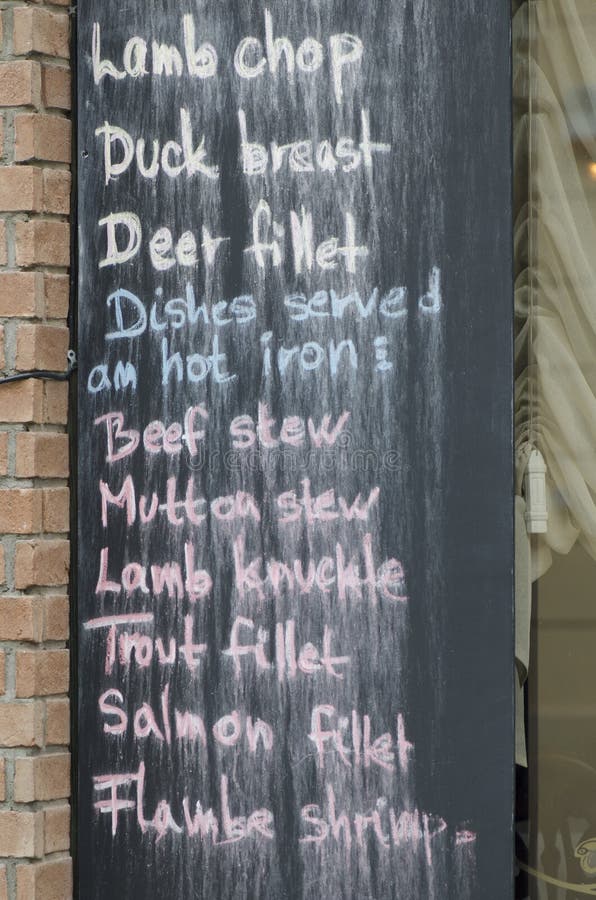 Lamb chop
Duck breast
Deer fillet
Dishes served
am hot iron:
Beef stew
Mutton stew
Lamb knuckle
Trout fillet
Salmon fillet
Flambe shrimp.
dreamstime